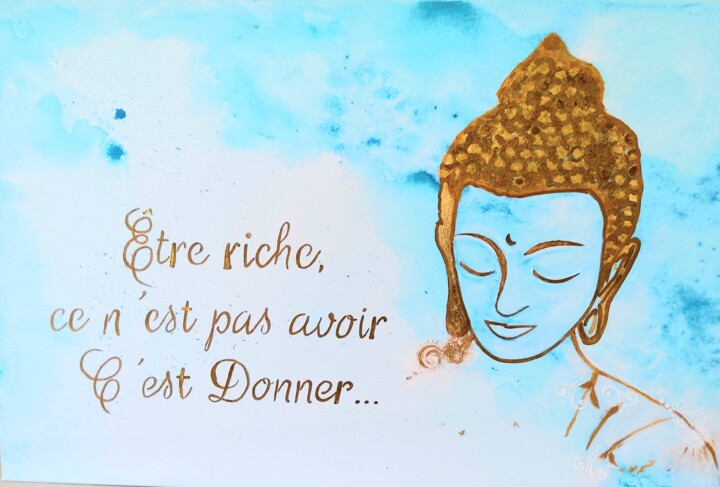 Être riche,
ce n'est pas avoir
C'est Donner...